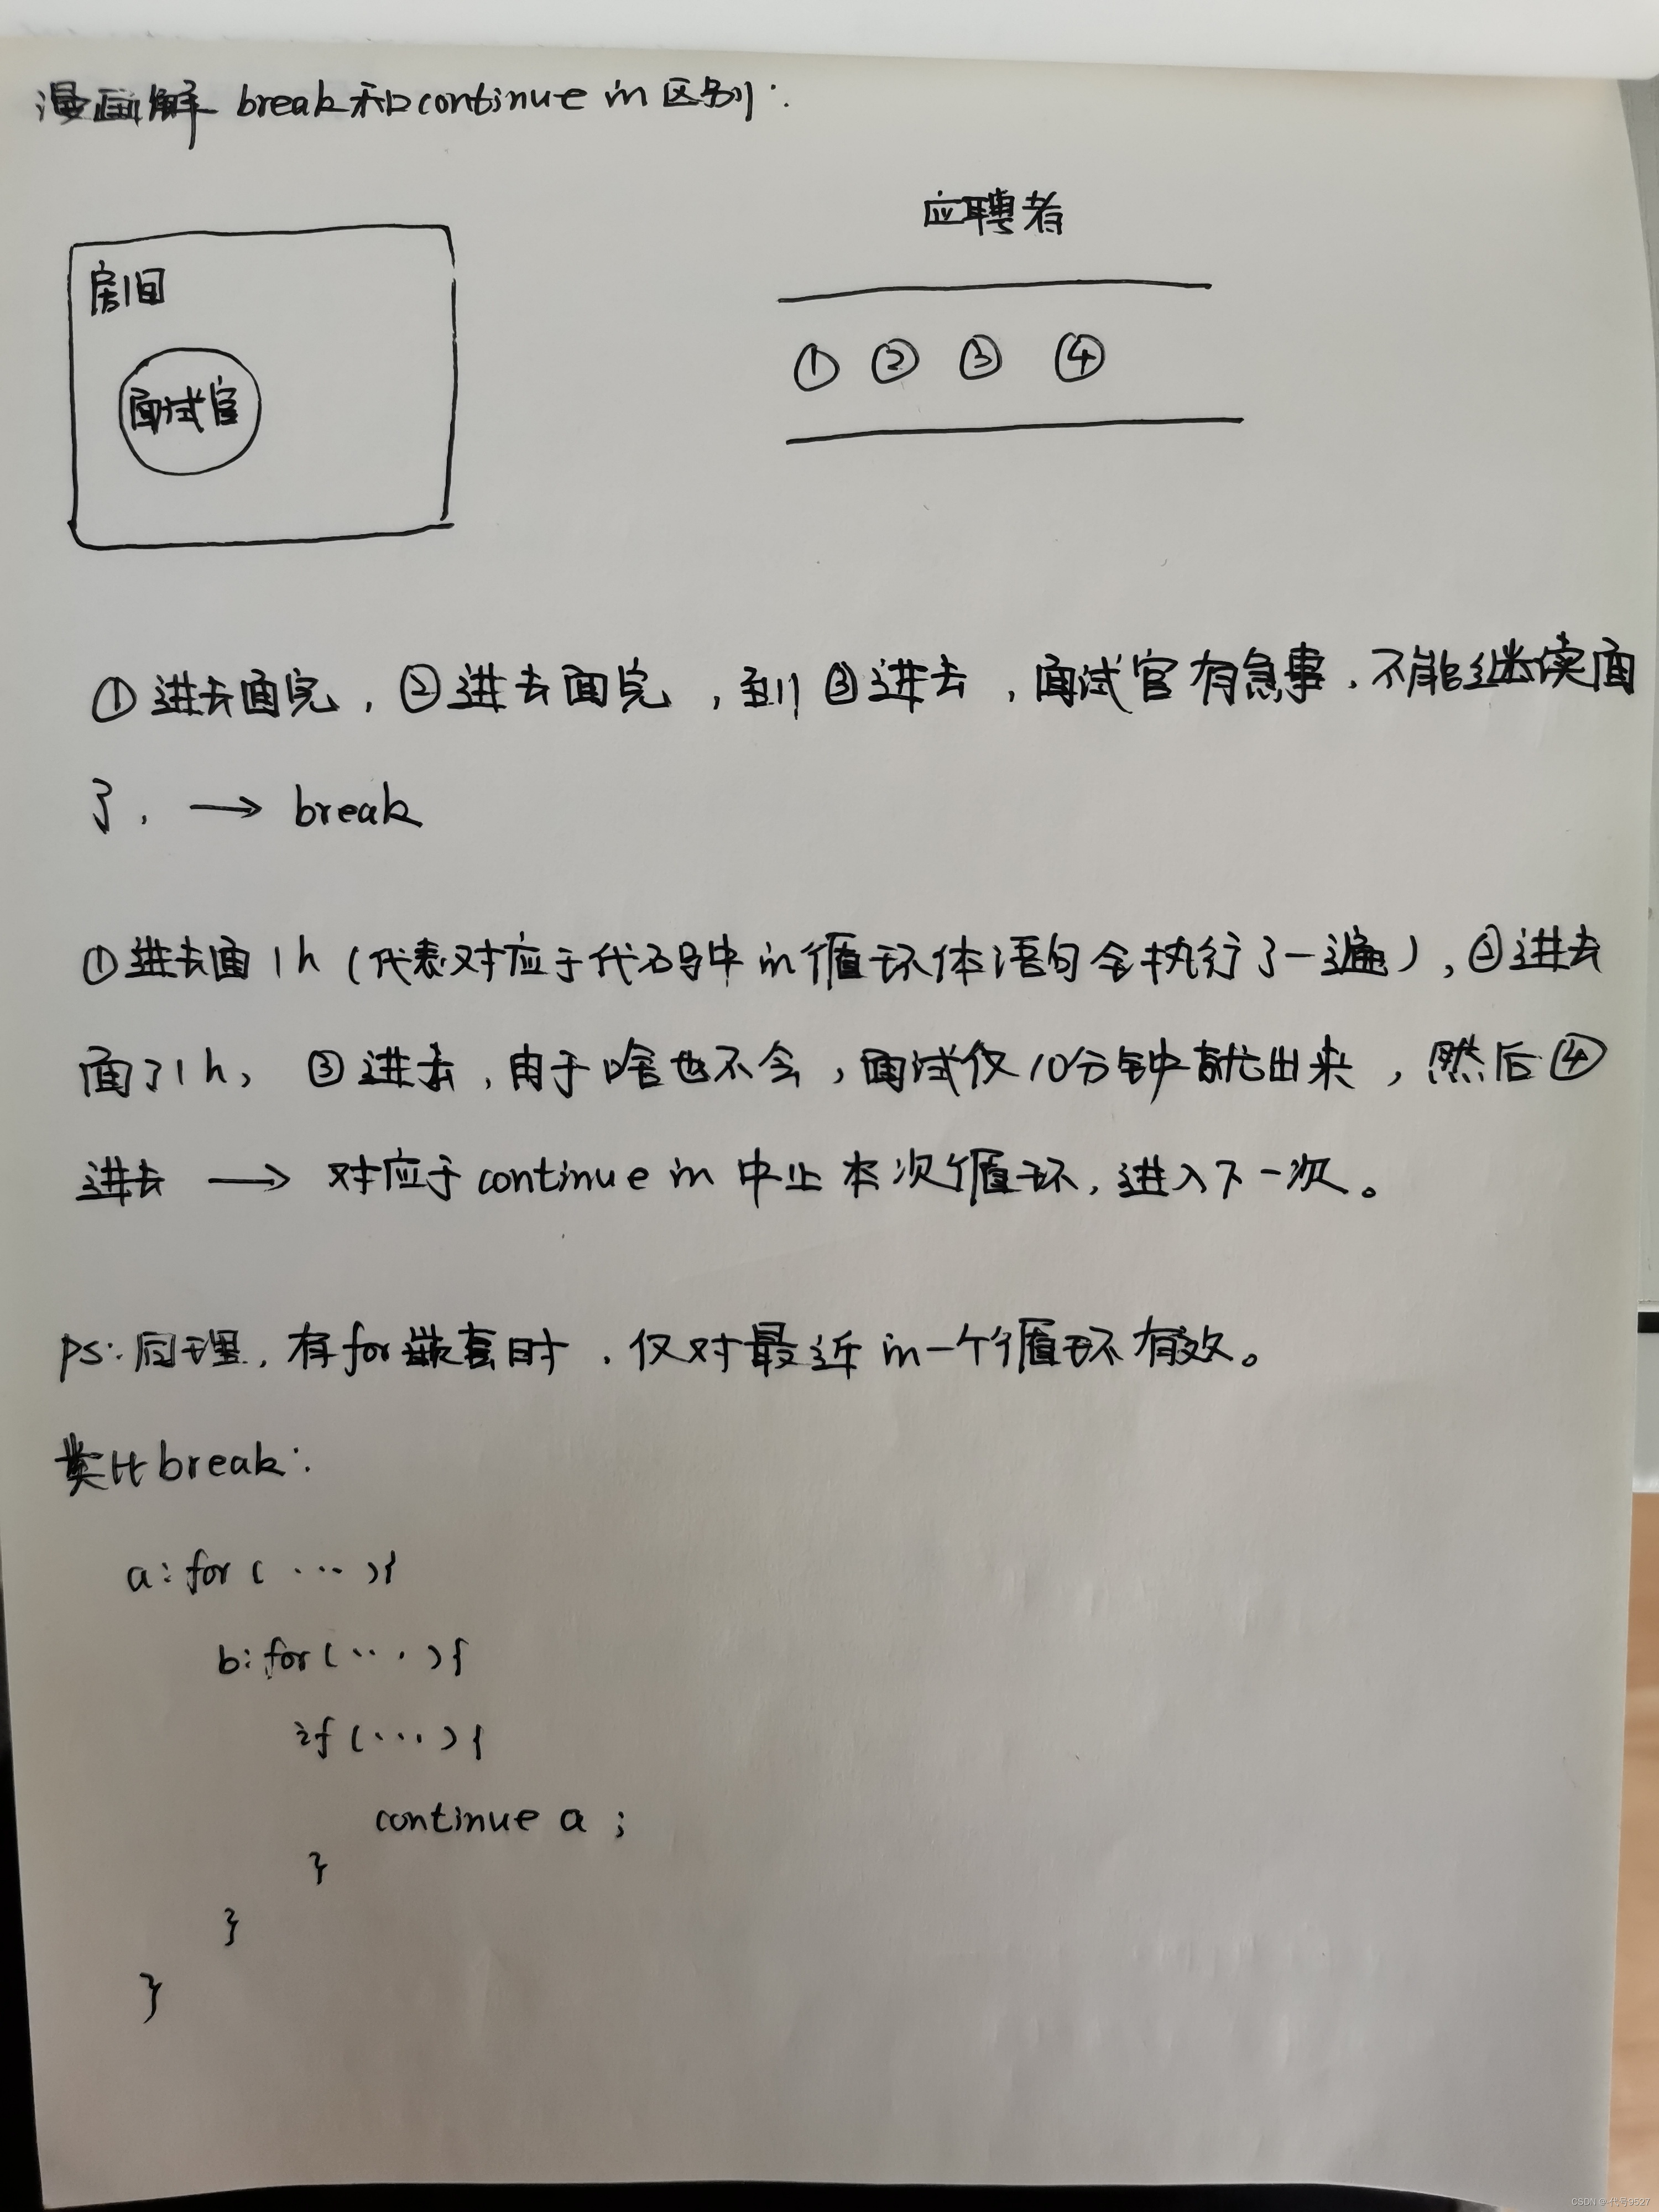 漫画解 break和continue in 区别:
应聘者
房间
① ② ③ ④
面试官
①进去面完，②进去面完，到③进去，面试官有急事，不能继续面
了. → break
①进去面1h（代表对应于代码中in循环体语句全执行了一遍），②进去
面了1h，③进去，由于啥也不会，面试仅10分钟就出来，然后④
进去 → 对应于continue in 中止本次循环，进入下一次。
ps:同理，有for嵌套时，仅对最近in一个循环有效。
类比break:
a:for( ... ){
b:for( ... ){
if(...){
continue a ;
}
}
}
CSDN @代号9527